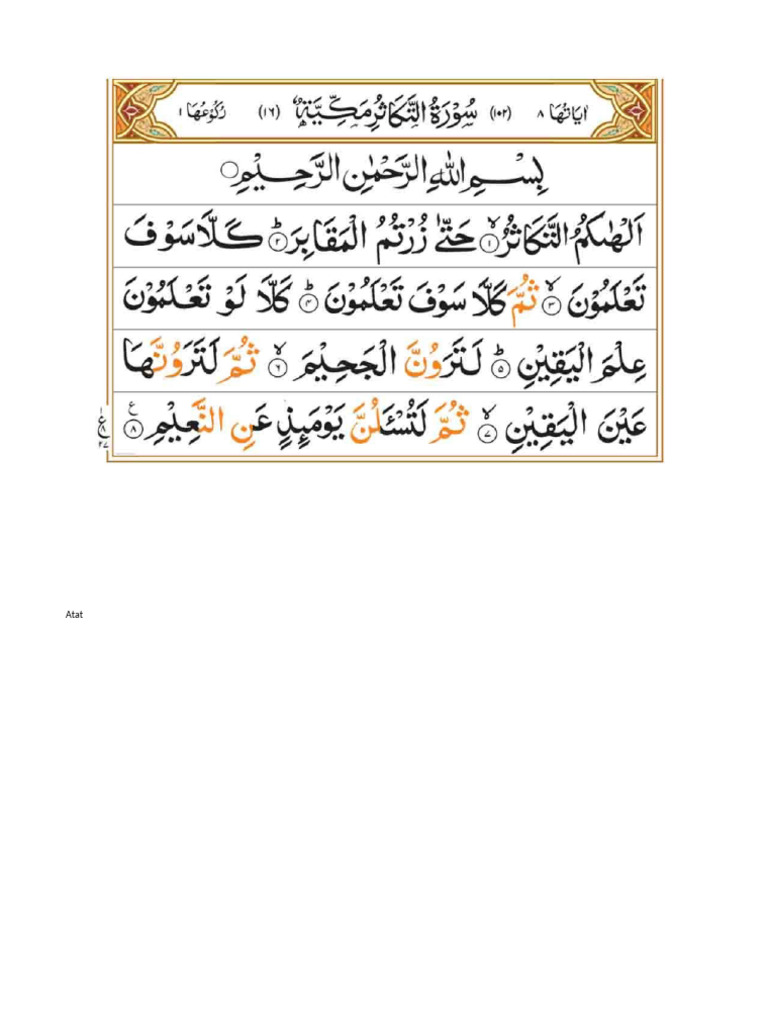 اٰيَاتُهَا ٨ (١٠٢) سُوْرَةُ التَّكَاثُرِ مَكِّيَّةٌ (١٦) رُكُوْعُهَا ١
بِسْمِ اللّٰهِ الرَّحْمٰنِ الرَّحِيْمِ
اَلْهٰىكُمُ التَّكَاثُرُ ۙ﴿١﴾ حَتّٰى زُرْتُمُ الْمَقَابِرَ ؕ﴿٢﴾ كَلَّا سَوْفَ
تَعْلَمُوْنَ ۙ﴿٣﴾ ثُمَّ كَلَّا سَوْفَ تَعْلَمُوْنَ ؕ﴿٤﴾ كَلَّا لَوْ تَعْلَمُوْنَ
عِلْمَ الْيَقِيْنِ ؕ﴿٥﴾ لَتَرَوُنَّ الْجَحِيْمَ ۙ﴿٦﴾ ثُمَّ لَتَرَوُنَّهَا
عَيْنَ الْيَقِيْنِ ۙ﴿٧﴾ ثُمَّ لَتُسْـَٔلُنَّ يَوْمَىِٕذٍ عَنِ النَّعِيْمِ ﴿٨﴾
Atat